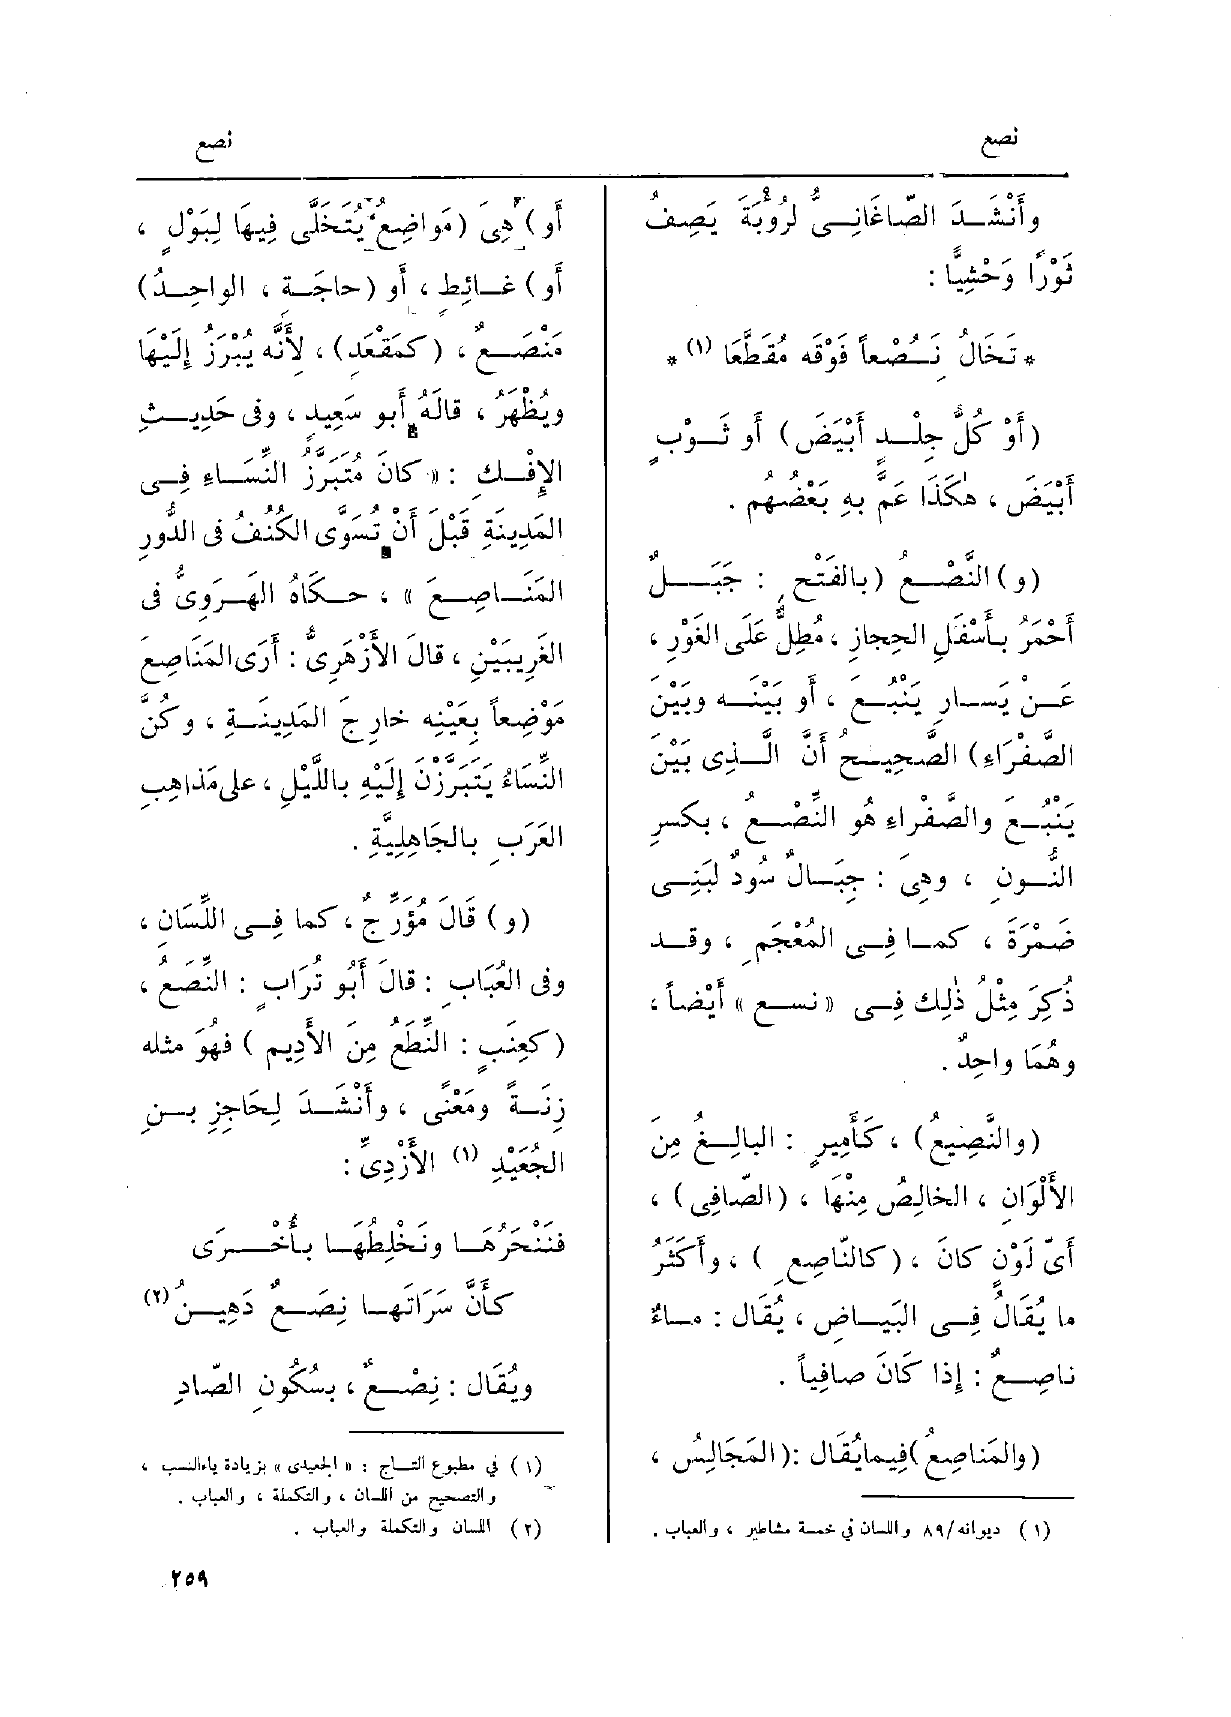 نصع
نصع
وأَنْشَدَ الصّاغَانِىُّ لرُؤْبَةَ يَصِفُ
ثَوْرًا وَحْشِيًّا :
* تَخَالُ نِصْعاً فَوْقَه مُقَطَّعَا (١) *
(أَوْ كُلُّ جِلْدٍ أَبْيَضَ) أَو ثَوْبٍ
أَبْيَضَ ، هٰكَذَا عَمَّ بِهِ بَعْضُهُم .
(و) النَّصْعُ (بالفَتْحِ : جَبَلٌ
أَحْمَرُ بأَسْفَلِ الحِجازِ ، مُطِلٌّ عَلَى الغَوْرِ ،
عَنْ يَسارِ يَنْبُعَ ، أَو بَيْنَه وبَيْنَ
الصَّفْراءِ) الصَّحِيحُ أَنَّ الَّذِى بَيْنَ
يَنْبُعَ والصَّفْراءِ هُو النِّصْعُ ، بكسرِ
النُّونِ ، وهِىَ : جِبَالٌ سُودٌ لبَنِى
ضَمْرَةَ ، كما فِى المُعْجَمِ ، وقد
ذُكِرَ مِثْلُ ذٰلِكَ فِى «نسع» أَيْضاً ،
وهُمَا واحِدٌ .
(والنَّصِيعُ) ، كَأَمِيرٍ : البالِغُ مِنَ
الأَلْوَانِ ، الخالِصُ مِنْهَا ، (الصّافِى) ،
أَىَّ لَوْنٍ كانَ ، (كالنّاصِعِ) ، وأَكْثَرُ
ما يُقَالُ فِى البَياضِ ، يُقَال : ماءٌ
ناصِعٌ : إِذا كَانَ صافِياً .
(والمَناصِعُ) فِيما يُقَال : (المَجَالِسُ ،
(١) ديوانه/٨٩ واللسان في خمسة مشاطير ، والعباب .
أَو) هِىَ (مَواضِعُ يُتَخَلَّى فِيهَا لِبَوْلٍ ،
أَو) غائِطٍ ، أَو (حاجَة ، الواحِدُ)
مَنْصَعٌ ، (كمَقْعَدٍ) ، لأَنَّه يُبْرَزُ إِلَيْهَا
ويُظْهَرُ ، قالَهُ أَبو سَعِيدٍ ، وفى حَدِيثِ
الإِفْكِ : «كانَ مُتَبَرَّزُ النِّسَاءِ فِى
المَدِينَةِ قَبْلَ أَنْ تُسَوَّى الكُنُفُ فى الدُّورِ
المَنَاصِعَ» ، حكَاهُ الهَرَوِىُّ فى
الغَرِيبَيْنِ ، قالَ الأَزْهَرِىُّ : أَرَى المَنَاصِعَ
مَوْضِعاً بِعَيْنِه خارِجَ المَدِينَةِ ، وكُنَّ
النِّسَاءُ يَتَبَرَّزْنَ إِلَيْهِ باللَّيْلِ ، على مَذاهِبِ
العَرَبِ بالجَاهِلِيَّةِ .
(و) قَالَ مُؤَرِّجٌ ، كما فِى اللِّسَانِ ،
وفى العُبَابِ : قالَ أَبُو تُرَابٍ : النِّصَعُ ،
(كعِنَبٍ : النِّطَعُ مِنَ الأَدِيمِ ) فهُوَ مثله
زِنَةً ومَعْنًى ، وأَنْشَدَ لِحَاجِزِ بنِ
الجُعَيْدِ (١) الأَزْدِىِّ :
فنَنْحَرُهَا ونَخْلِطُهَا بأُخْرَى
كأَنَّ سَرَاتَهَا نِصَعٌ دَهِينُ (٢)
ويُقَال : نِصْعٌ ، بسُكُونِ الصّادِ
(١) في مطبوع التاج : «الجعيدى» بزيادة ياء النسب ،
والتصحيح من اللسان ، والتكملة ، والعباب .
(٢) اللسان والتكملة والعباب .
٢٥٩